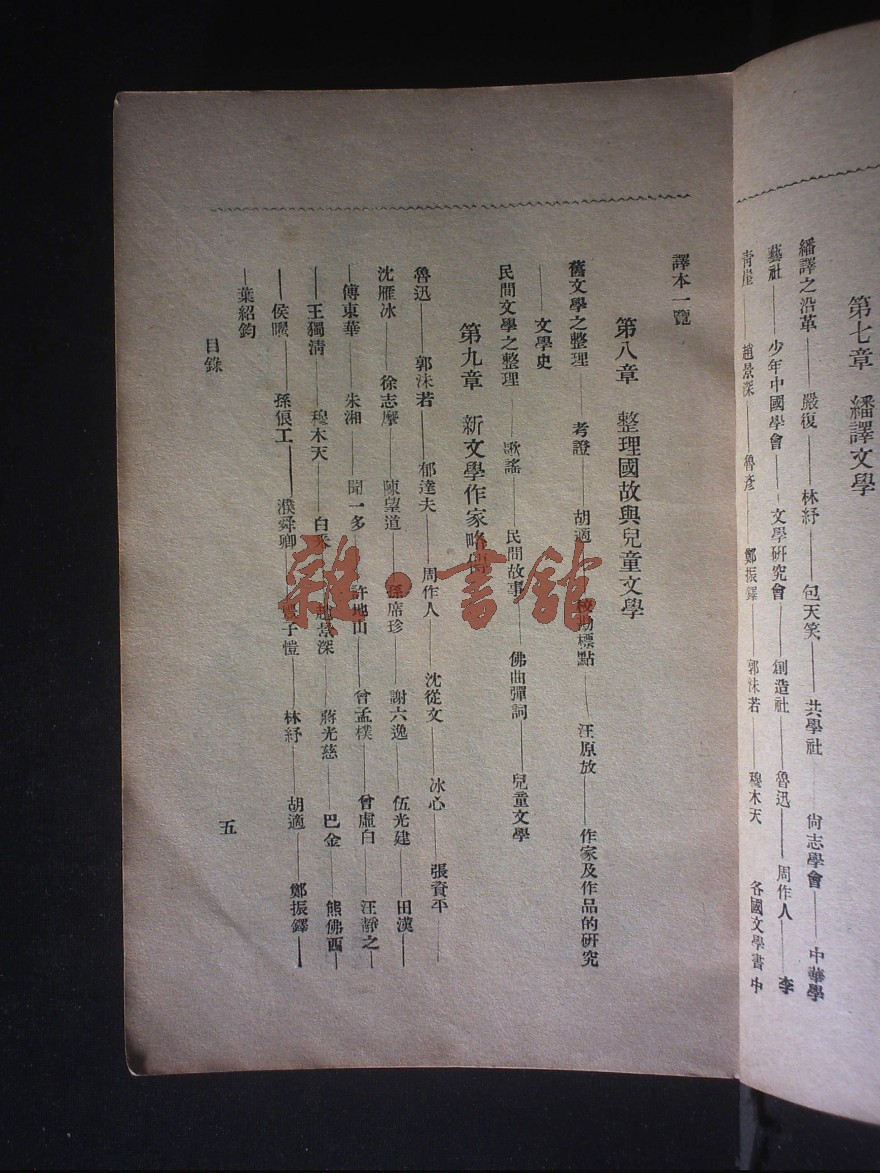 第七章　繙譯文學
繙譯之沿革——嚴復——林紓——包天笑——共學社——尙志學會——中華學
藝社——少年中國學會——文學硏究會——創造社——魯迅——周作人——李
靑崖——趙景深——魯彥——鄭振鐸——郭沫若——穆木天　各國文學書中
譯本一覽
第八章　整理國故與兒童文學
舊文學之整理——考證——胡適——校勘標點——汪原放——作家及作品的硏究
——文學史
民間文學之整理　歌謠——民間故事——佛曲彈詞——兒童文學
第九章　新文學作家略傳
魯迅——郭沫若——郁達夫——周作人——沈從文——冰心——張資平——
沈雁冰——徐志摩——陳望道——孫席珍——謝六逸——伍光建——田漢——
—傅東華——朱湘——聞一多——許地山——曾孟樸——曾虛白——汪靜之—
——王獨淸——穆木天——白采——趙景深——蔣光慈——巴金——熊佛西—
——侯曜——孫俍工——濮舜卿——豐子愷——林紓——胡適——鄭振鐸——
—葉紹鈞
目錄
五
雜·書館